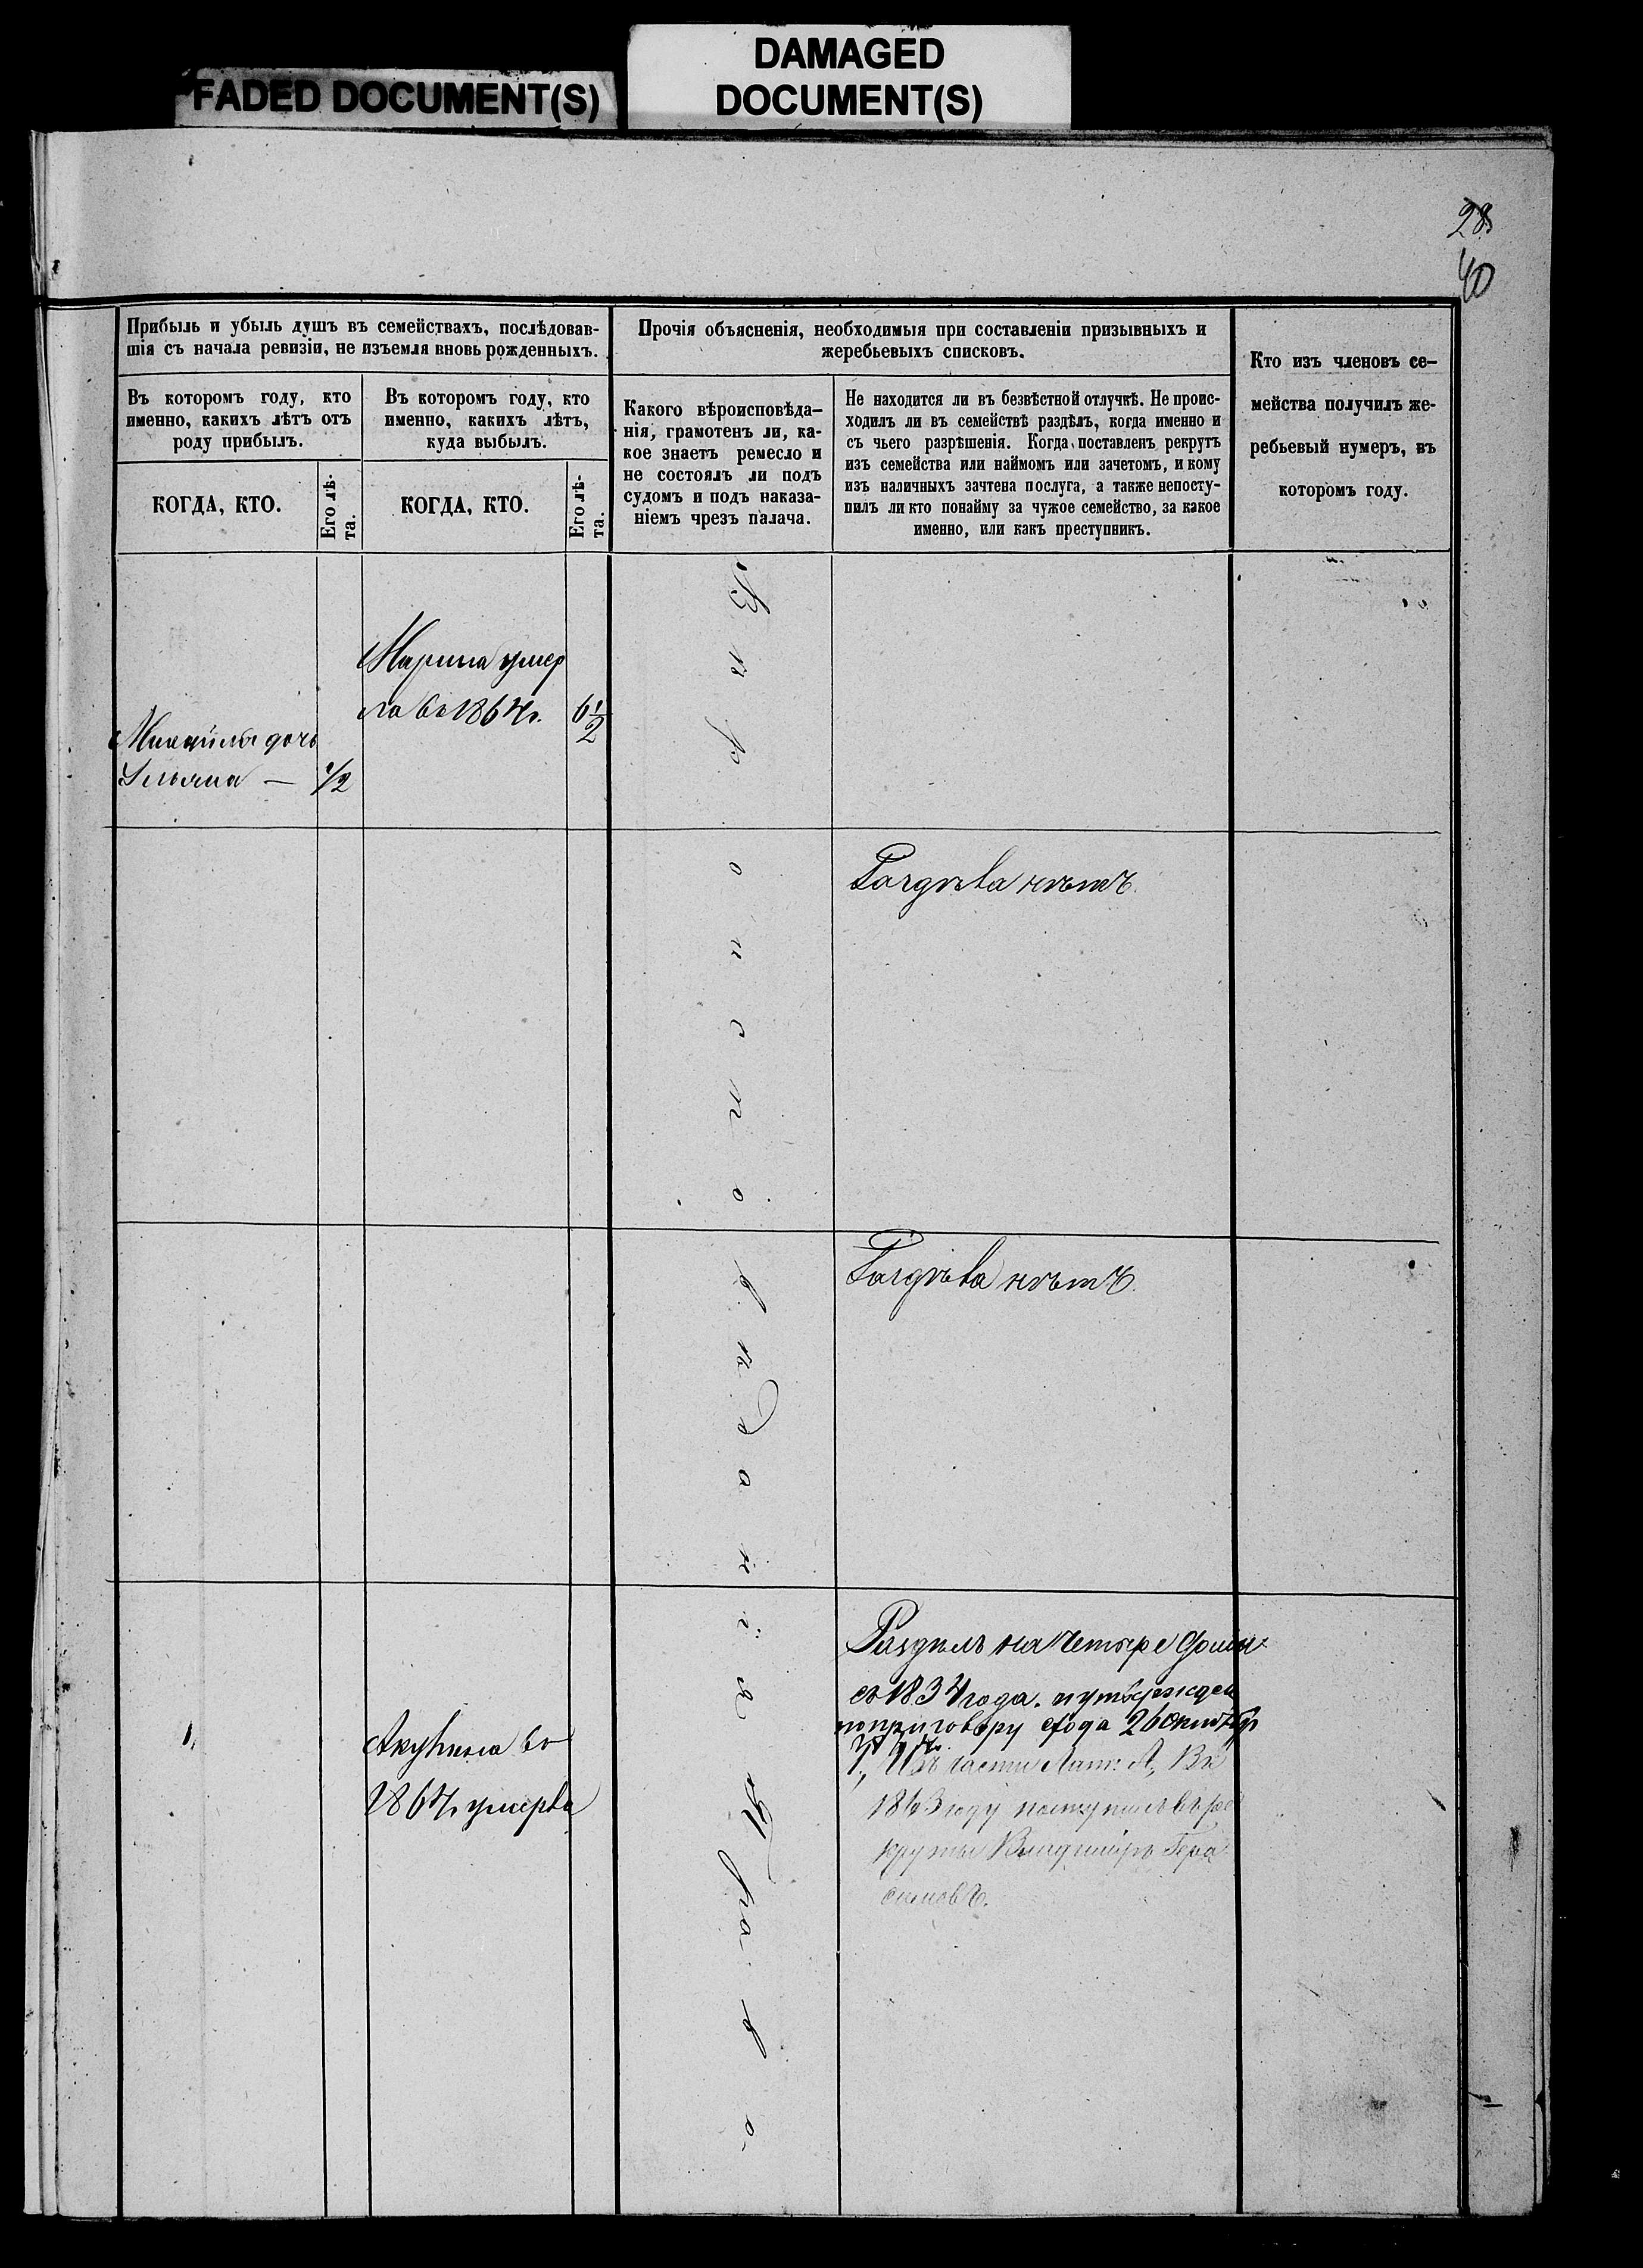 FADED DOCUMENT(S)
DAMAGED
DOCUMENT(S)
28
40
Прибыль и убыль душъ въ семействахъ, послѣдовав-
шія съ начала ревизіи, не изъемля вновь рожденныхъ.
Въ которомъ году, кто
именно, какихъ лѣтъ отъ
роду прибылъ.
Въ которомъ году, кто
именно, какихъ лѣтъ,
куда выбылъ.
КОГДА, КТО.
Его лѣ-
та.
КОГДА, КТО.
Его лѣ-
та.
Прочія объясненія, необходимыя при составленіи призывныхъ и
жеребьевыхъ списковъ.
Какого вѣроисповѣда-
нія, грамотенъ ли, ка-
кое знаетъ ремесло и
не состоялъ ли подъ
судомъ и подъ наказа-
ніемъ чрезъ палача.
Не находится ли въ безвѣстной отлучкѣ. Не проис-
ходилъ ли въ семействѣ раздѣлъ, когда именно и
съ чьего разрѣшенія. Когда поставленъ рекрутъ
изъ семейства или наймомъ или зачетомъ, и кому
изъ наличныхъ зачтена послуга, а также непосту-
пилъ ли кто понайму за чужое семейство, за какое
именно, или какъ преступникъ.
Кто изъ членовъ се-
мейства получилъ же-
ребьевый нумеръ, въ
которомъ году.
Марина умер
ла въ 1864 г. 6 1/2
Михайлы дочь
Ульяна — 1/2
Раздѣла нѣтъ.
Раздѣла нѣтъ
Раздѣлъ на четыре
съ 1834 года. и утвержден
по приговору схода 26 октября
Изъ части Лит: А, Въ
1863 году поступилъ въ ре
круты Владиміръ Гера
симовъ.
Акулина въ
1864 г. умерла